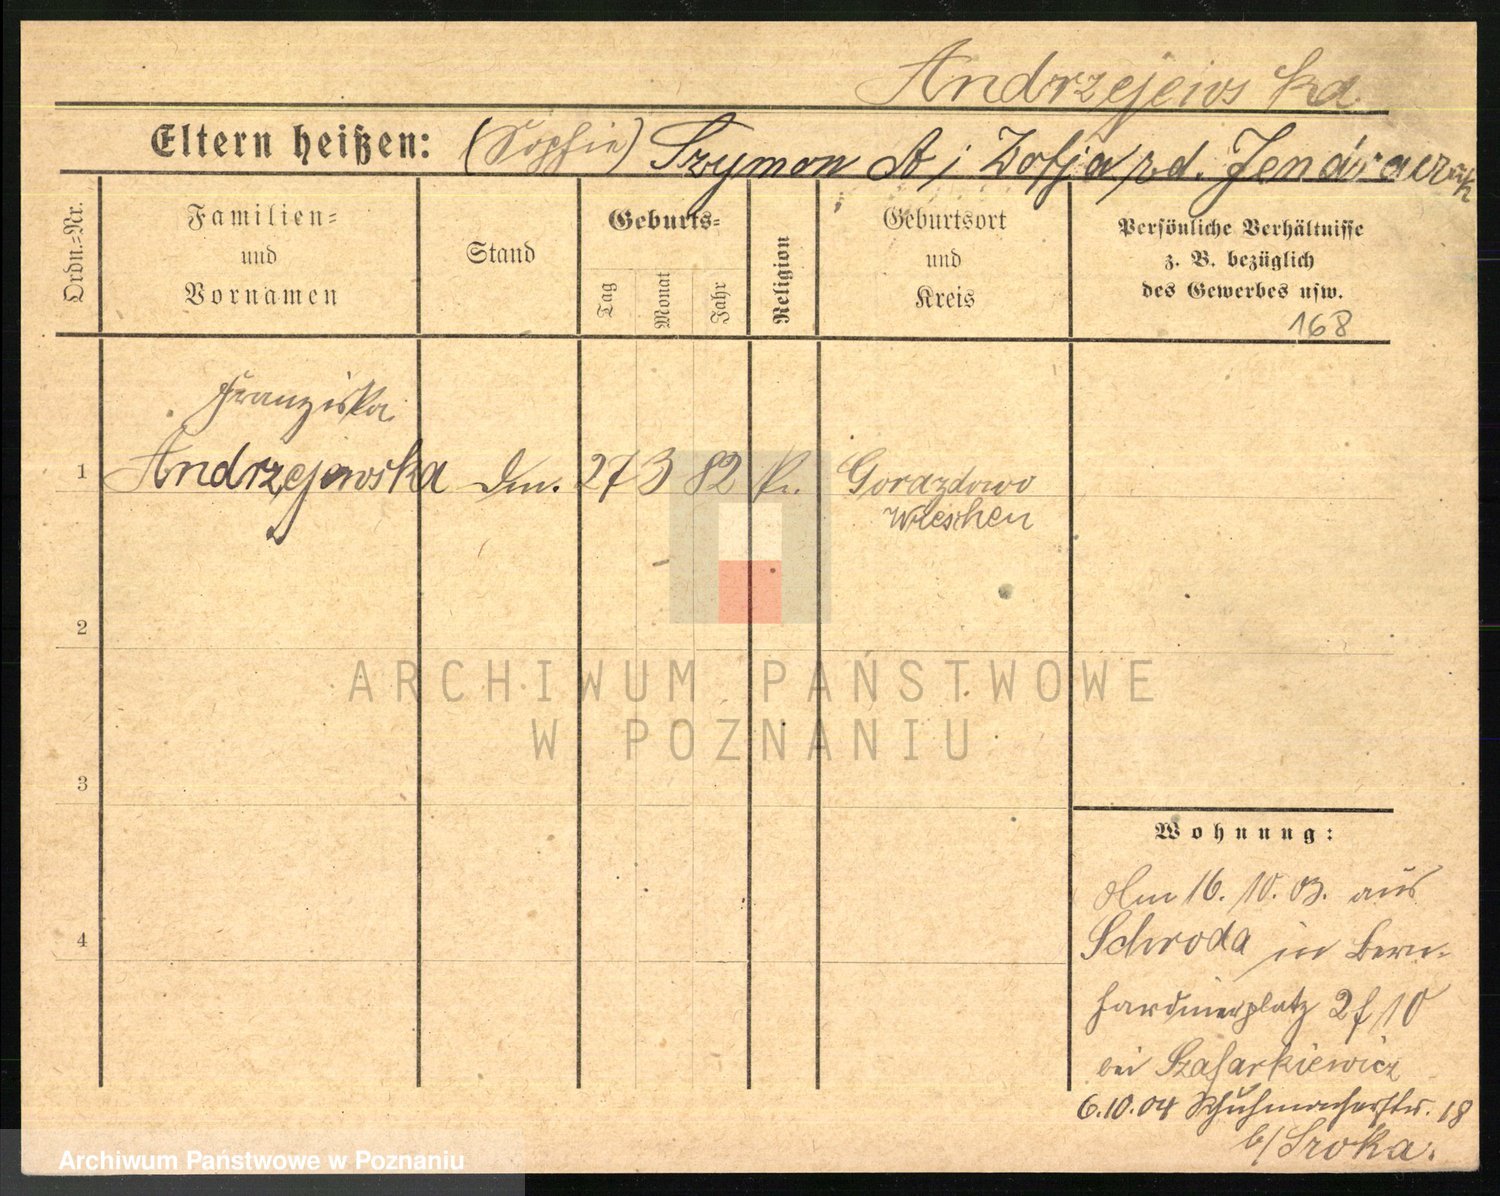 Andrzejewska
Eltern heißen: (Sophie) Szymon A; Zofja zd.
Ordn.=Nr.
Familien=
und
Vornamen
Stand
Geburts=
Tag
Monat
Jahr
Religion
Geburtsort
und
Kreis
Persönliche Verhältnisse
z. B. bezüglich
des Gewerbes usw.
168
Franziska
1 Andrzejewska 27 3 82 Gorazdowo
Wreschen
2
3
4
Wohnung:
Am 16. 10. 03. aus
Schroda in Bern-
hardinerplatz 2 f 10
bei Szafarkiewicz
6.10.04 Schuhmacherstr. 18
b/ Sroka.
ARCHIWUM PAŃSTWOWE
W POZNANIU
Archiwum Państwowe w Poznaniu